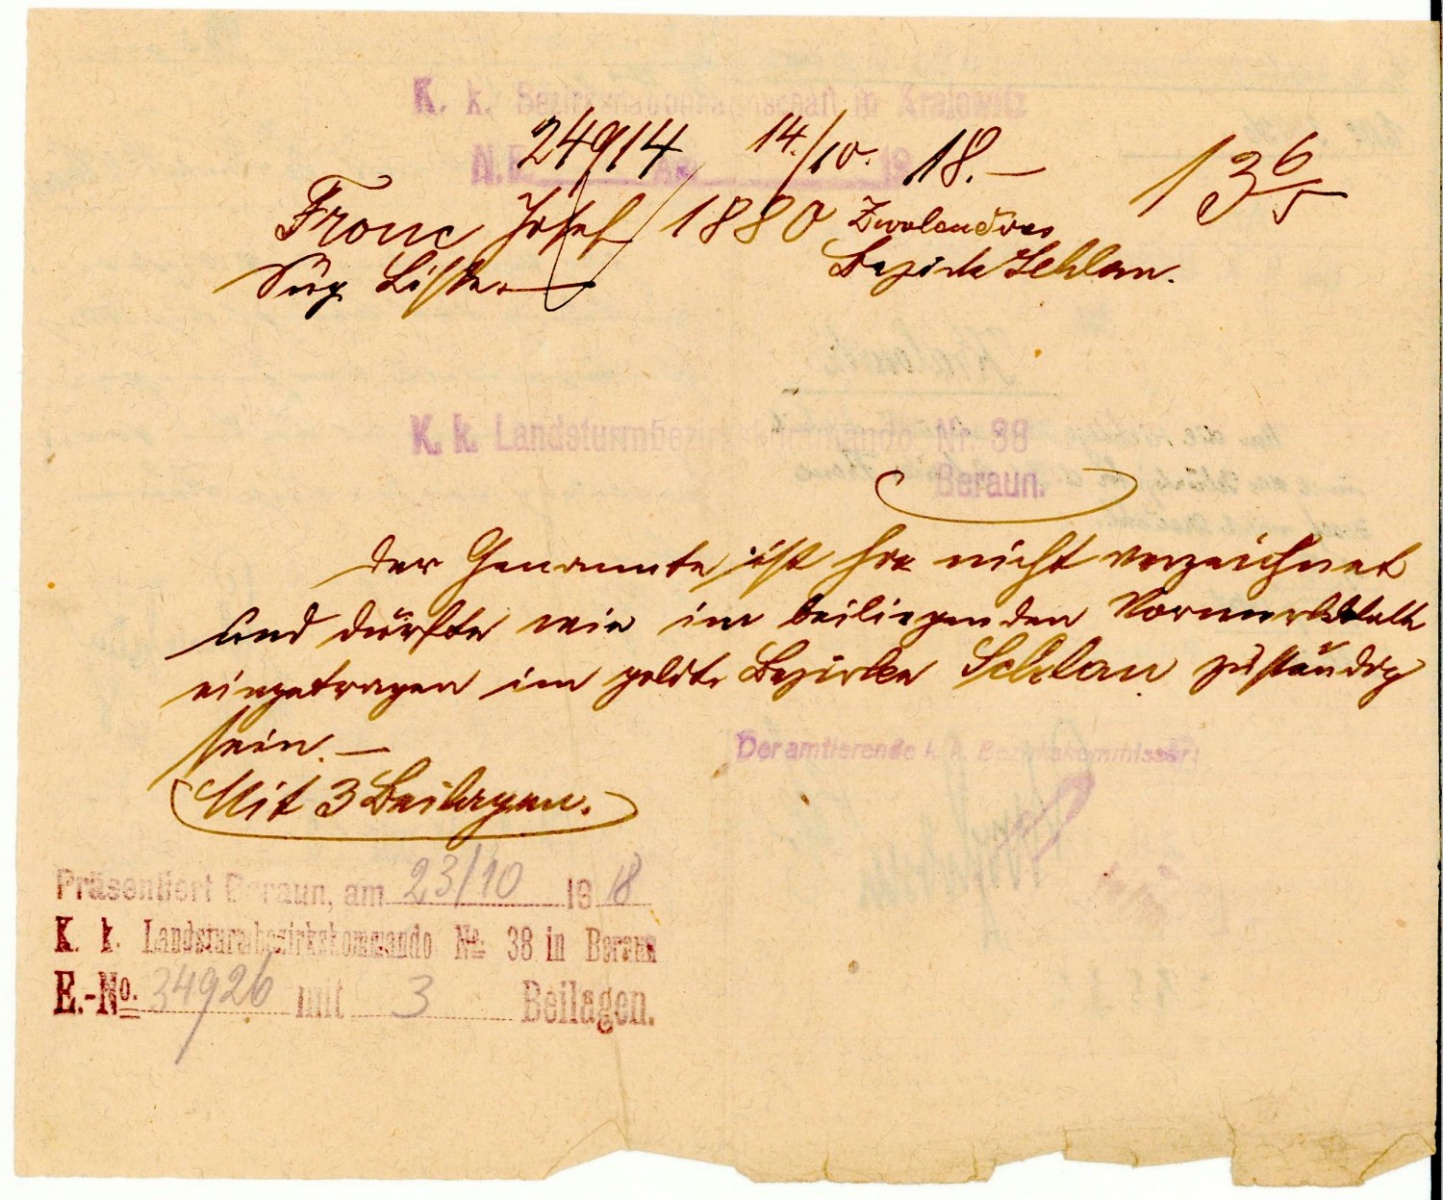 K. k. Bezirkshauptmannschaft in Kralowitz
N.E. 24914 14./10. 1918.—
13 6/5
Franc Josef 1880 Zwolenoves
Bezirk Schlan.
Liste
K. k. Landsturmbezirkskommando Nr. 38
Beraun.
Der Genannte ist hra nicht verzeichnet
und dürfte wie im beiliegenden Vormerkblatte
eingetragen im polit. Bezirke Schlan zuständig
sein.—
Mit 3 Beilagen.
Der amtierende k. k. Bezirkskommissär:
Präsentiert Beraun, am 23/10 1918
K. k. Landsturmbezirkskommando No. 38 in Beraun
E.-No. 34926 mit 3 Beilagen.